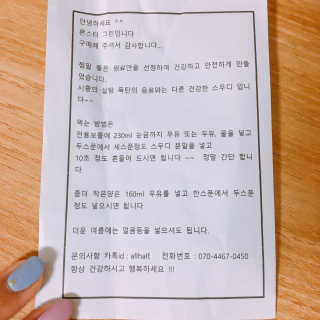 안녕하세요 ^^
몬스터 그린입니다
구매해 주셔서 감사합니다...
정말 좋은 원료만을 선정하여 건강하고 안전하게 만들
었습니다.
시중의 설탕 폭탄의 음료와는 다른 건강한 스무디 입니
다~~
먹는 방법은
전용보틀에 230ml 눈금까지 우유 또는 두유, 물을 넣고
두스푼에서 세스푼정도 스무디 분말을 넣고
10초 정도 흔들어 드시면 됩니다 ~~ 정말 간단 합니
다.
좀더 작은양은 160ml 우유를 넣고 한스푼에서 두스푼
정도 넣으시면 됩니다
더운 여름에는 얼음등을 넣으셔도 됩니다.
문의사항 카톡id : allhatt 전화번호 : 070-4467-0450
항상 건강하시고 행복하세요 !!!